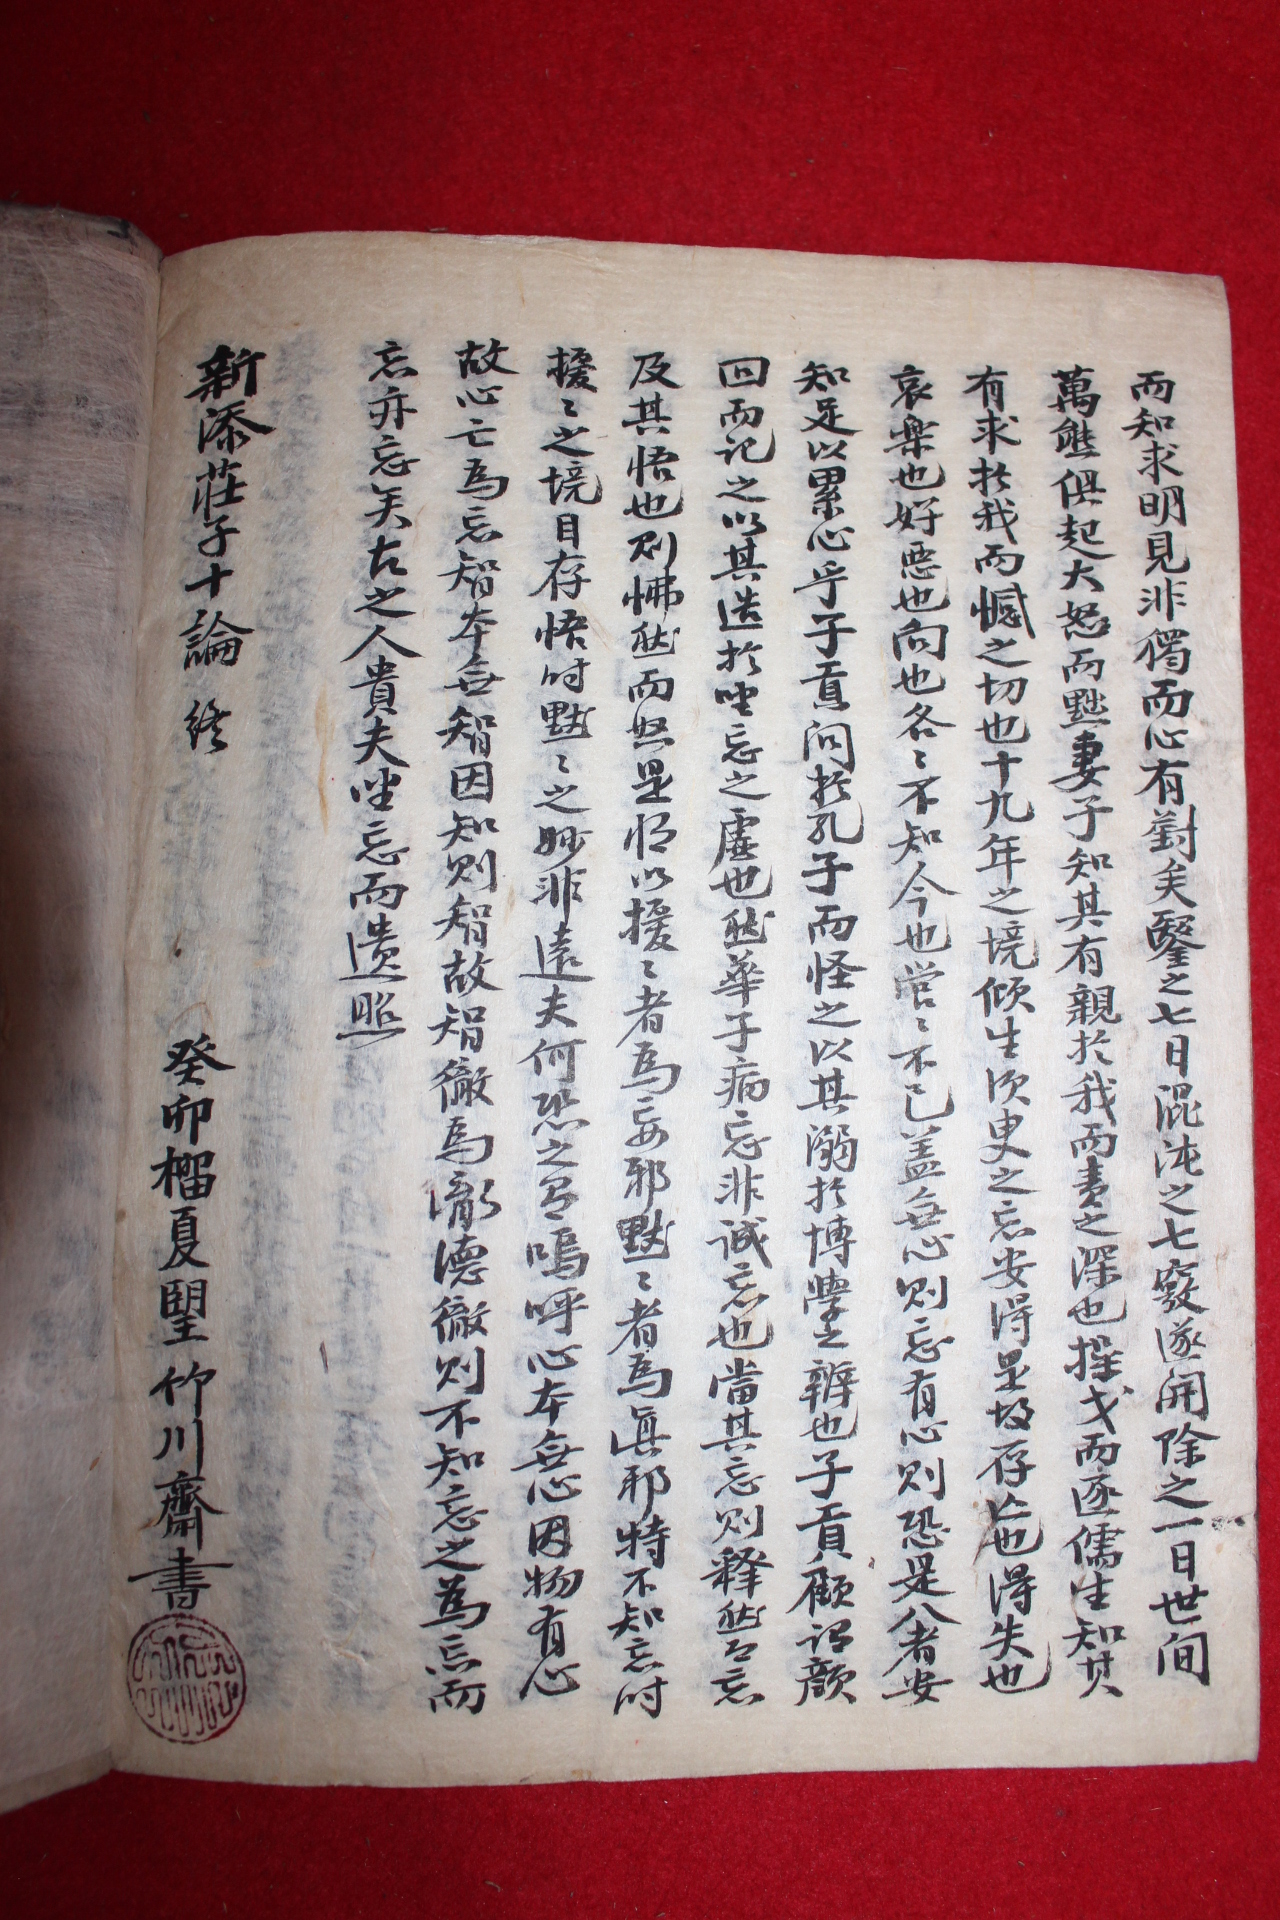 而知求明見非獨而心有對矣鑿之七日混沌之七竅遂開除之一日世间
萬態俱起大怒而黜妻子知其有親於我而責之深也操戈而逐儒生知其
有求於我而憾之切也十九年之境倾生须臾之忘安得是故存亡也得失也
哀楽也好惡也向也各〻不知今也営〻不已盖無心则忘有心则恐是八者安
知足以累心乎子貢问於孔子而怪之以其溺於博學之辨也子貢顧谓颜
回而记之以其造於坐忘之虛也然華子病忘非诚忘也當其忘则释然而忘
及其悟也则怫然而怒是恬以擾〻者為妄邪黙〻者為眞邪特不知忘时
擾〻之境自存悟时黙〻之妙非遠夫何恐之有嗚呼心本無心因物有心
故心亡為忘智本無智因知则智故智徹為德德徹则不知忘之為忘而
忘亦忘矣古之人貴夫坐忘而遗照
新添莊子十論 終
癸卯榴夏望竹川齋書